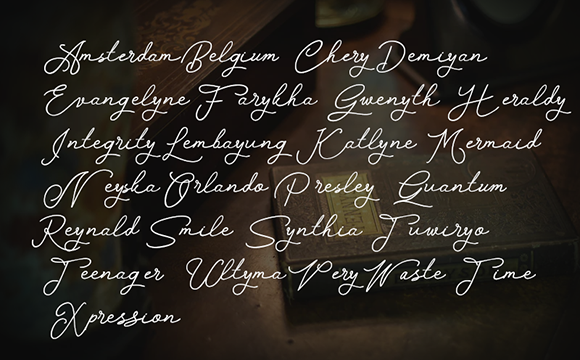 Amsterdam Belgium Chery Demiyan
Evangelyne Farykha Gwenyth Heraldy
Integrity Lembayung Katlyne Mermaid
Neyska Orlando Presley Quantum
Reynald Smile Synthia Tuwiryo
Teenager Ultyma Very Waste Time
Xpression